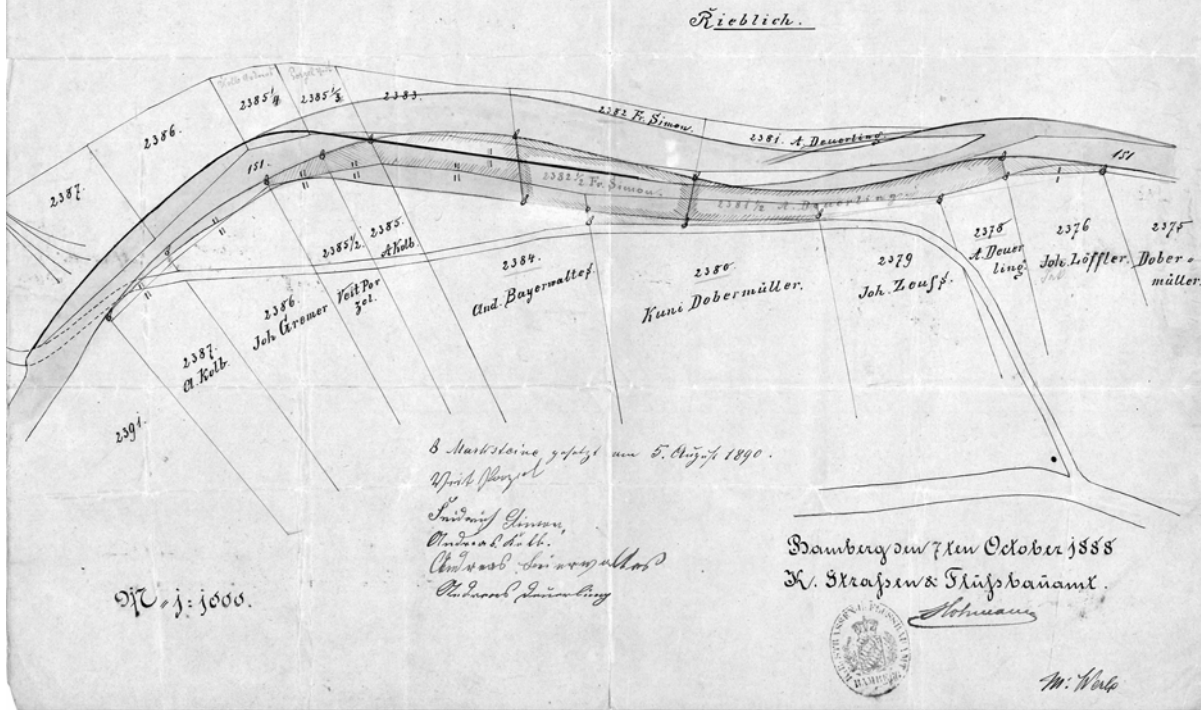 Rieblich.
Kolb Andreas
2385 1/4
2385 1/3
2383.
2386.
2387.
2382 Fr. Simon.
2381. A. Deuerling.
151.
151
2382 1/2 Fr. Simon.
2381 1/2 A. Deuerling
2385 1/2.
2385.
A Kolb.
Veit Por
zel.
2386.
Joh Gremer
2387.
A. Kolb.
2391.
2384.
And. Bayerwaltes.
2380
Kuni Dobermüller.
2379
Joh. Zeuss.
2378
A. Deuer
ling.
2376
Joh. Löffler.
2375
Dober=
müller.
8 Marksteine gesetzt am 5. August 1890.
Veit Porzel
Friedrich Simon,
Andreas Kolb.
Andreas Beierwaltes
Andreas Deuerling
M = 1:1000.
Bamberg den 7ten October 1888
K. Straßen & Flußbauamt.
Hohmann
BAMBERG